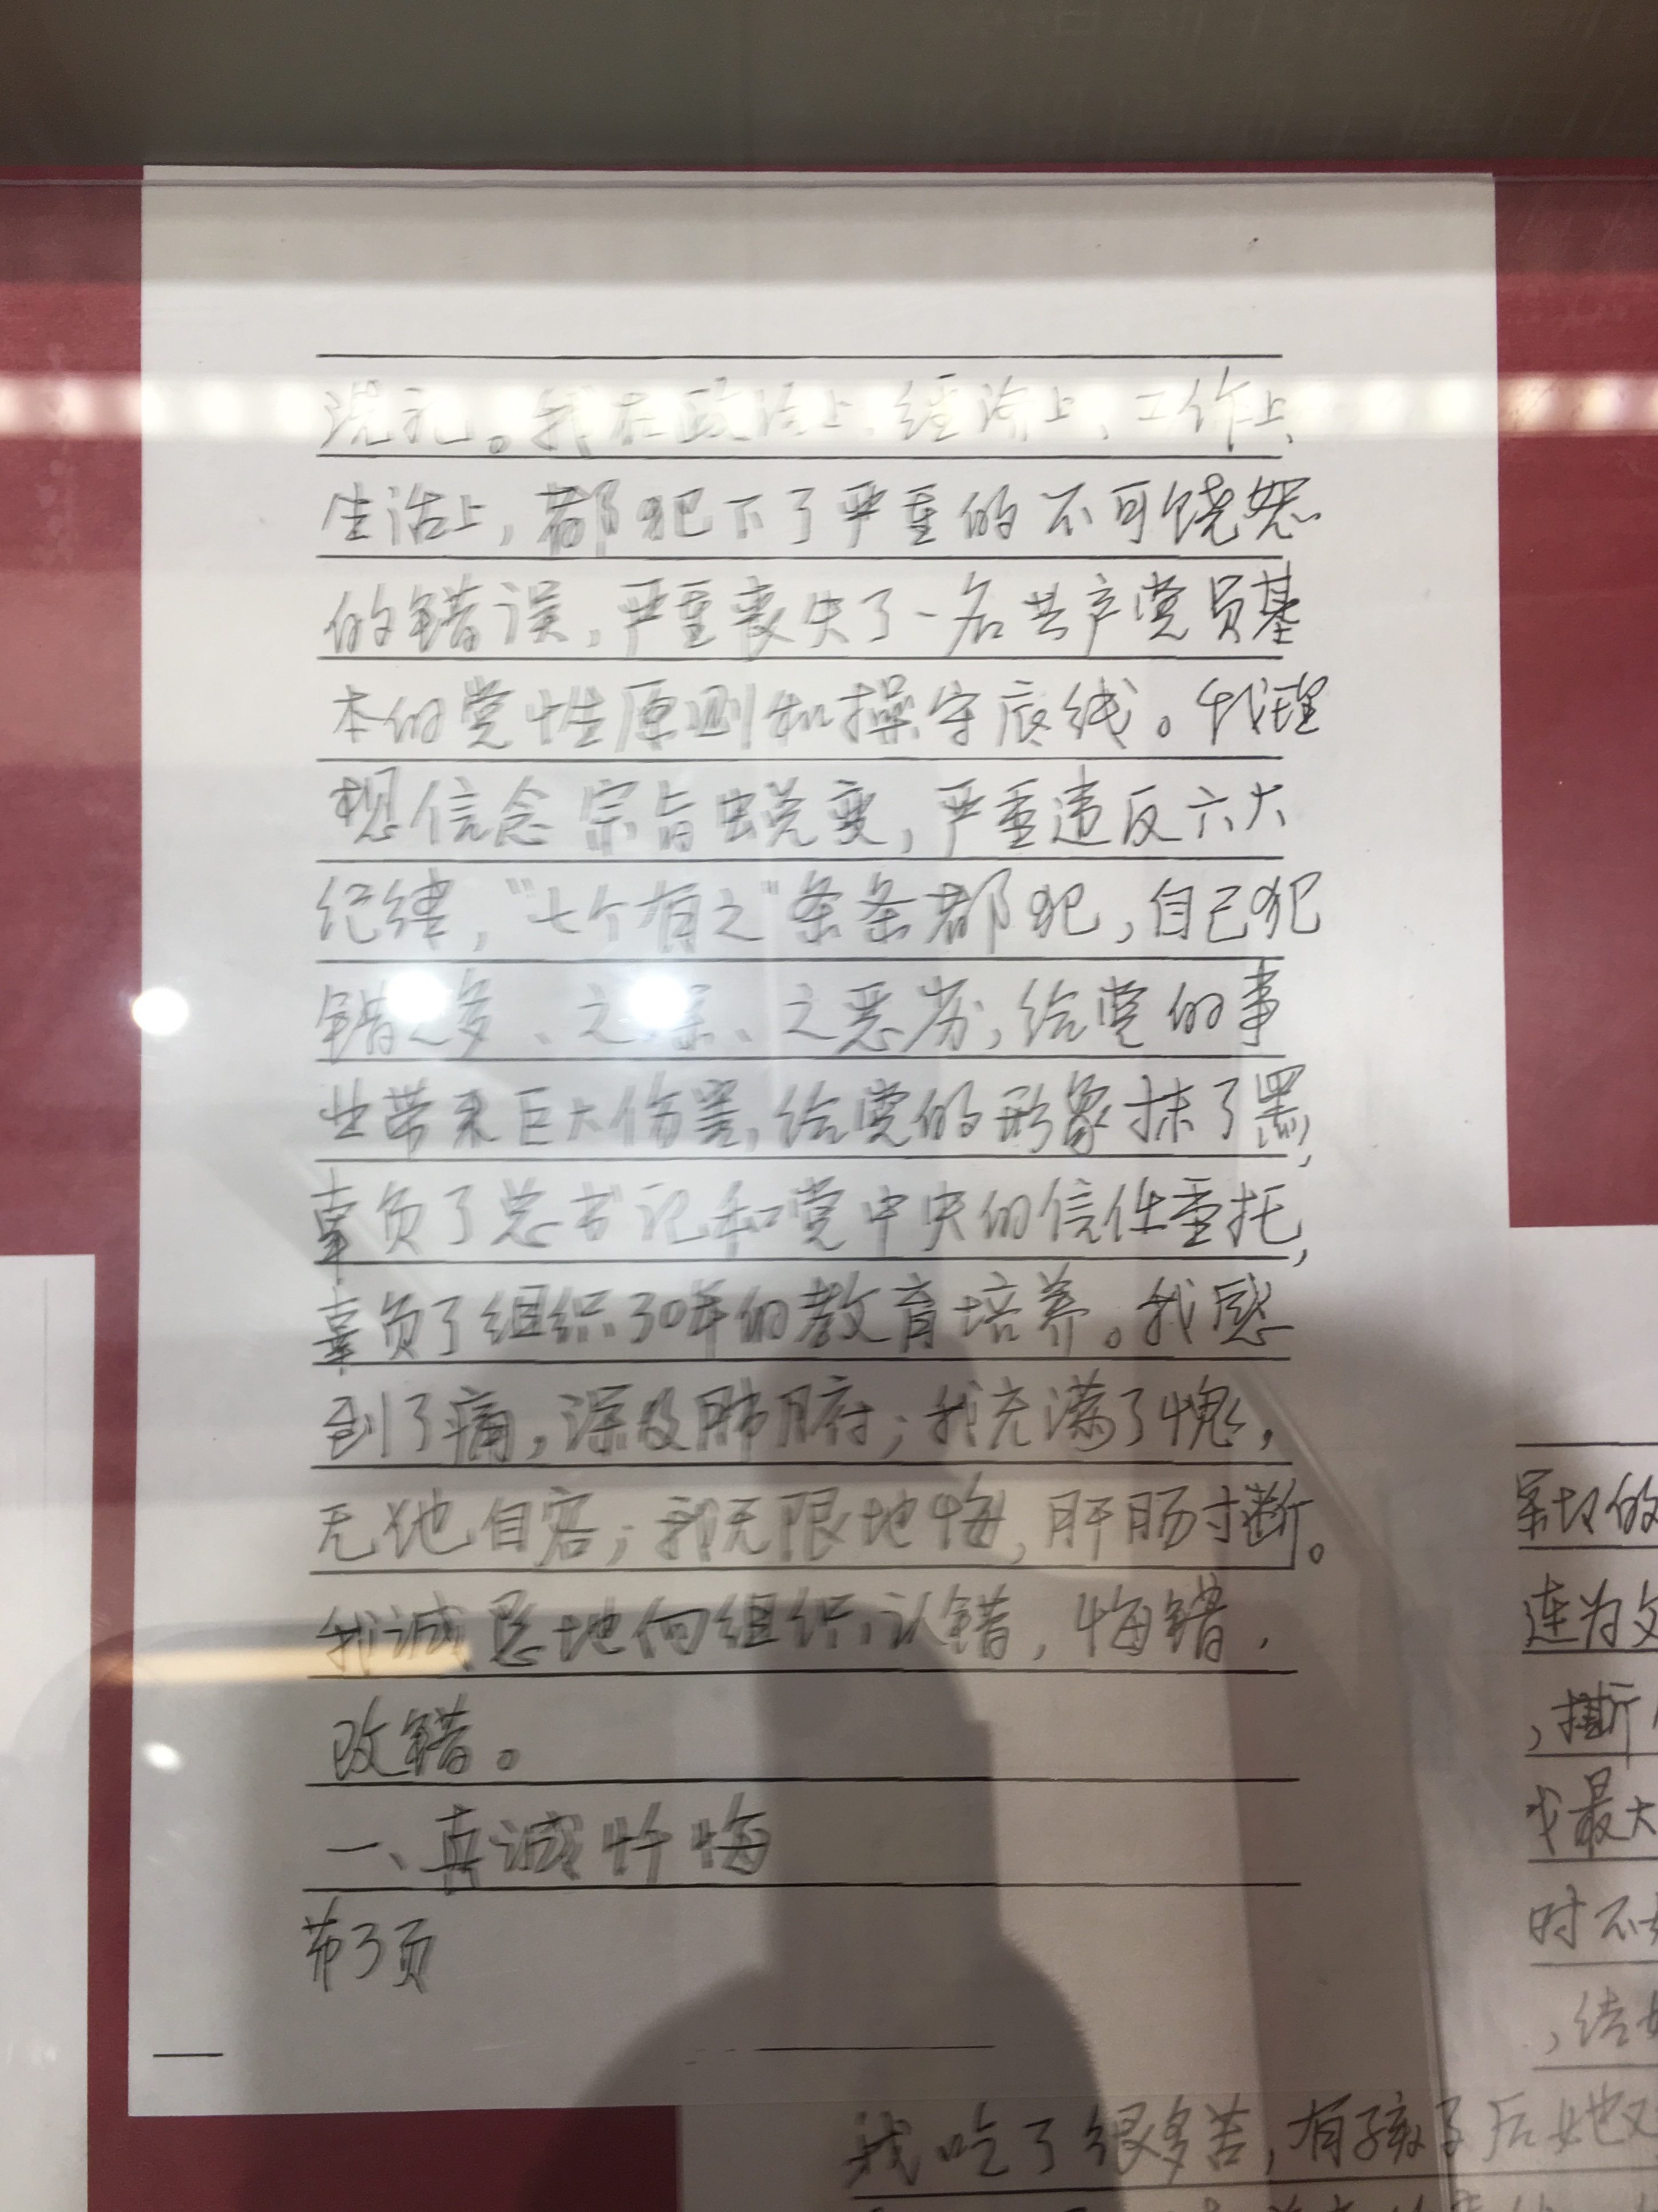 洗礼。我在政治上、经济上、工作上、
生活上，都犯下了严重的不可饶恕
的错误，严重丧失了一名共产党员基
本的党性原则和操守底线。我理
想信念宗旨蜕变，严重违反六大
纪律，“七个有之”条条都犯，自己犯
错之多、之深、之恶劣，给党的事
业带来巨大伤害，给党的形象抹了黑，
辜负了总书记和党中央的信任重托，
辜负了组织30年的教育培养。我感
到了痛，深及肺腑；我充满了愧，
无地自容；我无限地悔，肝肠寸断。
我诚恳地向组织认错，悔错，
改错。
一、真诚忏悔
第3页
的
连为
，撕
我最大
时不
，结
我吃了很多苦，有孩子后她又